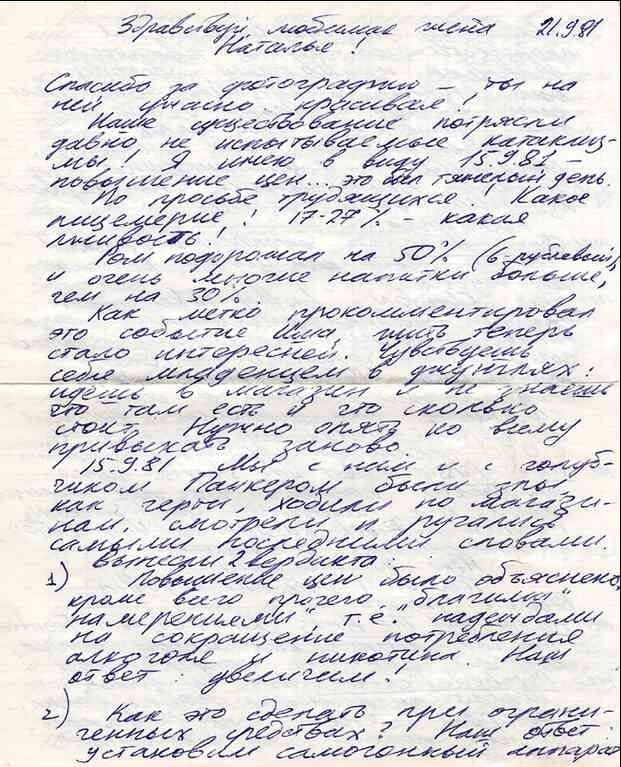 Здравствуй, любимая чиста 21.9.81
Наталья!
Спасибо за фотографию – ты на
ней ужасно красивая!
Наше существование потрясли
давно не испытываемые катаклиз-
мы! Я имею в виду 15.9.81 –
повышение цен... это был тяжелый день.
По просьбе трудящихся! Какое
лицемерие! 17-27% – какая
лживость!
Ром подорожал на 50% (6-рублевый),
и очень многие напитки больше,
чем на 30%.
Как метко прокомментировал
это событие жить теперь
стало интересней. Чувствуешь
себя младенцем в джунглях:
идешь в магазин и не знаешь
что там есть и что сколько
стоит. Нужно опять ко всему
привыкать заново.
15.9.81 Мы с ним и с голуб-
чиком Панкером были злы
как черти, ходили по магази-
нам, смотрели и ругались
самыми последними словами.
Вынесли 2 вердикта:
1) Повышение цен было объяснено,
кроме всего прочего, "благими
намерениями", т.е. надеждами
на сокращение потребления
алкоголя и никотина. Наш
ответ: увеличим!
2) Как это сделать при ограни-
ченных средствах? Наш ответ:
установим самогонный аппарат